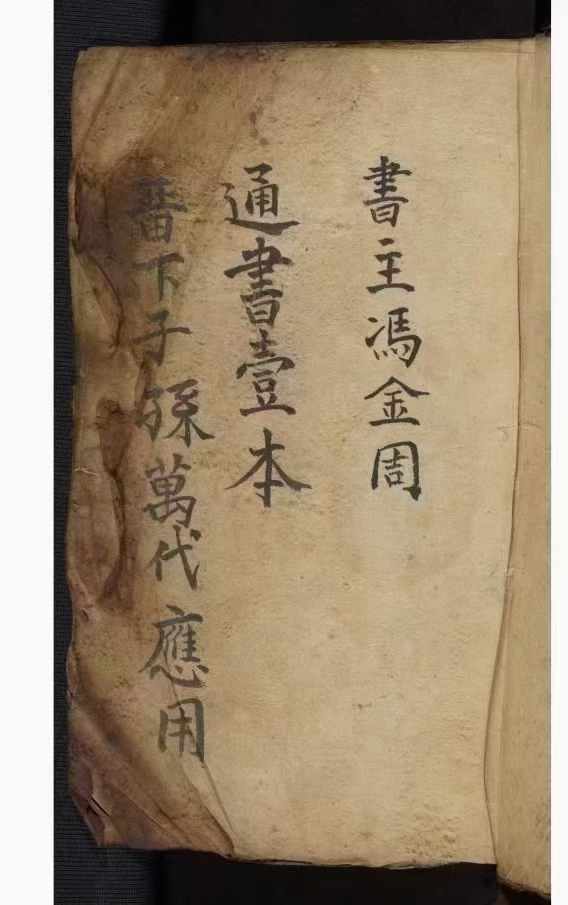 書主馮金周
通書壹本
畨下子孫萬代應用